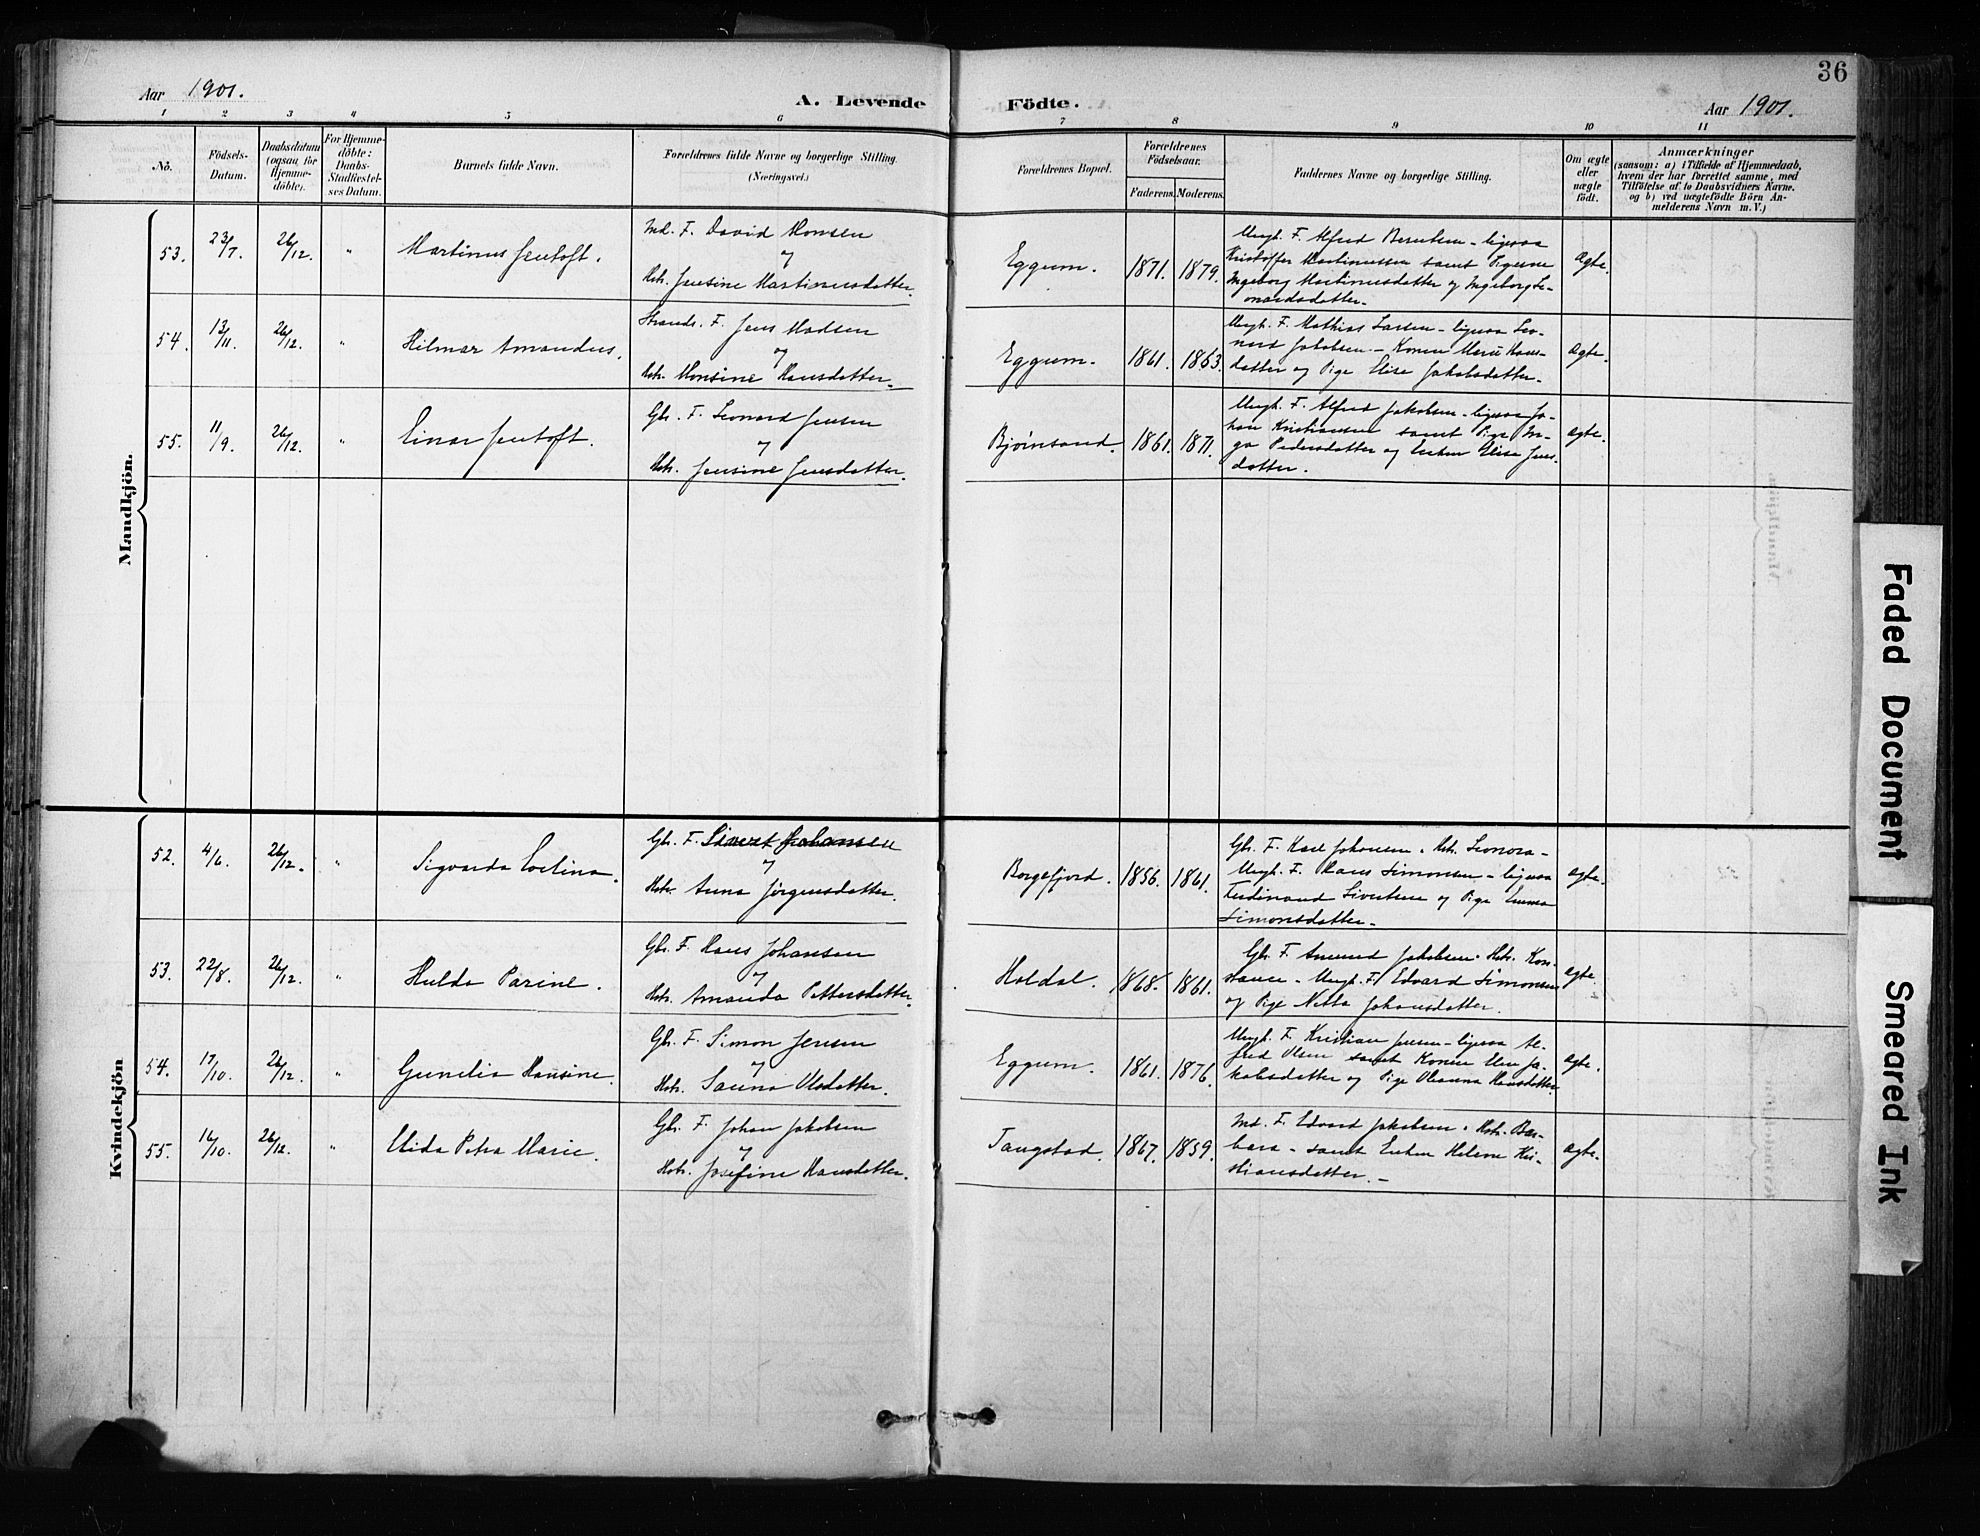 36
Aar 1901.
A. Levende Födte.
Aar 1901.
1 2 3 4 5 6 7 8 9 10 11
No.
Födsels-
Datum.
Daabsdatum
(ogsaa for
Hjemme-
döbte).
For Hjemme-
döbte:
Daabs-
Stadfæstel-
ses Datum.
Barnets fulde Navn.
Forældrenes fulde Navne og borgerlige Stilling.
(Næringsvei.)
Forældrenes Bopæl.
Forældrenes
Födselsaar.
Faderens. Moderens.
Faddernes Navne og borgerlige Stilling.
Om ægte
eller
uægte
födt.
Anmærkninger
(saasom: a) i Tilfælde af Hjemmedaab,
hvem der har forrettet samme, med
Tilföielse af to Daabsvidners Navne.
og b) ved uægtefödte Börn An-
melderens Navn m. V.)
Mandkjön.
53. 23/7. 26/12. " Martinus Jentoft.
Ind. F. David Monsen
og
Hstr. Jensine Martinusdatter.
Eggum. 1871. 1879.
Ungk. F. Alfred Berntsen - ligesaa
Kristoffer Martinussen samt Pigerne
Ingeborg Martinusdatter og Ingeborg Le-
onardsdatter.
Ægte.
54. 13/11. 26/12. " Hilmar Amandus.
Strands. F. Jens Madsen
og
Hstr. Monsine Hansdatter.
Eggum. 1861. 1863.
Ungk. F. Mathias Larsen - ligesaa Leo-
nard Jakobsen - Konen Marie Hans-
datter og Pige Elise Jakobsdatter.
Ægte.
55. 11/9. 26/12. " Einar Jentoft.
Gbr. F. Leonard Jensen
og
Hstr. Jensine Jensdatter.
Bjørnsand. 1861. 1871.
Ungk. F. Alfred Jakobsen - ligesaa Jo-
han Kristiansen samt Pige In-
ga Pedersdatter og Enken Elise Jens-
datter.
Ægte.
Kvindekjön
52. 4/6. 26/12. " Sigvarda Evelina.
Gbr. F. Sivert Johansen
og
Hstr. Anna Jørgensdatter.
Borgefjord. 1856. 1861.
Gbr. F. Karl Johansen. Hstr. Leonora -
Ungk. F. Hans Simonsen - ligesaa
Ferdinand Sivertsen og Pige Emma
Simonsdatter.
Ægte.
53. 22/8. 26/12. " Hulda Parine.
Gbr. F. Hans Johansen
og
Hstr. Amanda Pettersdatter.
Holdal. 1868. 1861.
Gbr. F. Amund Jakobsen. Hstr. Kon-
stanse - Ungk. F. Edvard Simonsen
og Pige Netta Johansdatter.
Ægte.
54. 17/10. 26/12. " Gunelia Hansine.
Gbr. F. Simon Jensen
og
Hstr. Sanna Olsdatter.
Eggum. 1861. 1876.
Ungk. F. Kristian Jensen - ligesaa Al-
fred Olsen samt Konen Elen Ja-
kobsdatter og Pige Oleanna Hansdatter.
Ægte.
55. 16/10. 26/12. " Petra Marie.
Gbr. F. Johan Jakobsen
og
Hstr. Josefine Hansdatter.
Tangstad. 1867. 1859.
Ind. F. Edvard Jakobsen. Hstr. Bar-
bara - samt Enken Helene Kri-
stiansdatter. -
Ægte.
Faded Document
Smeared Ink